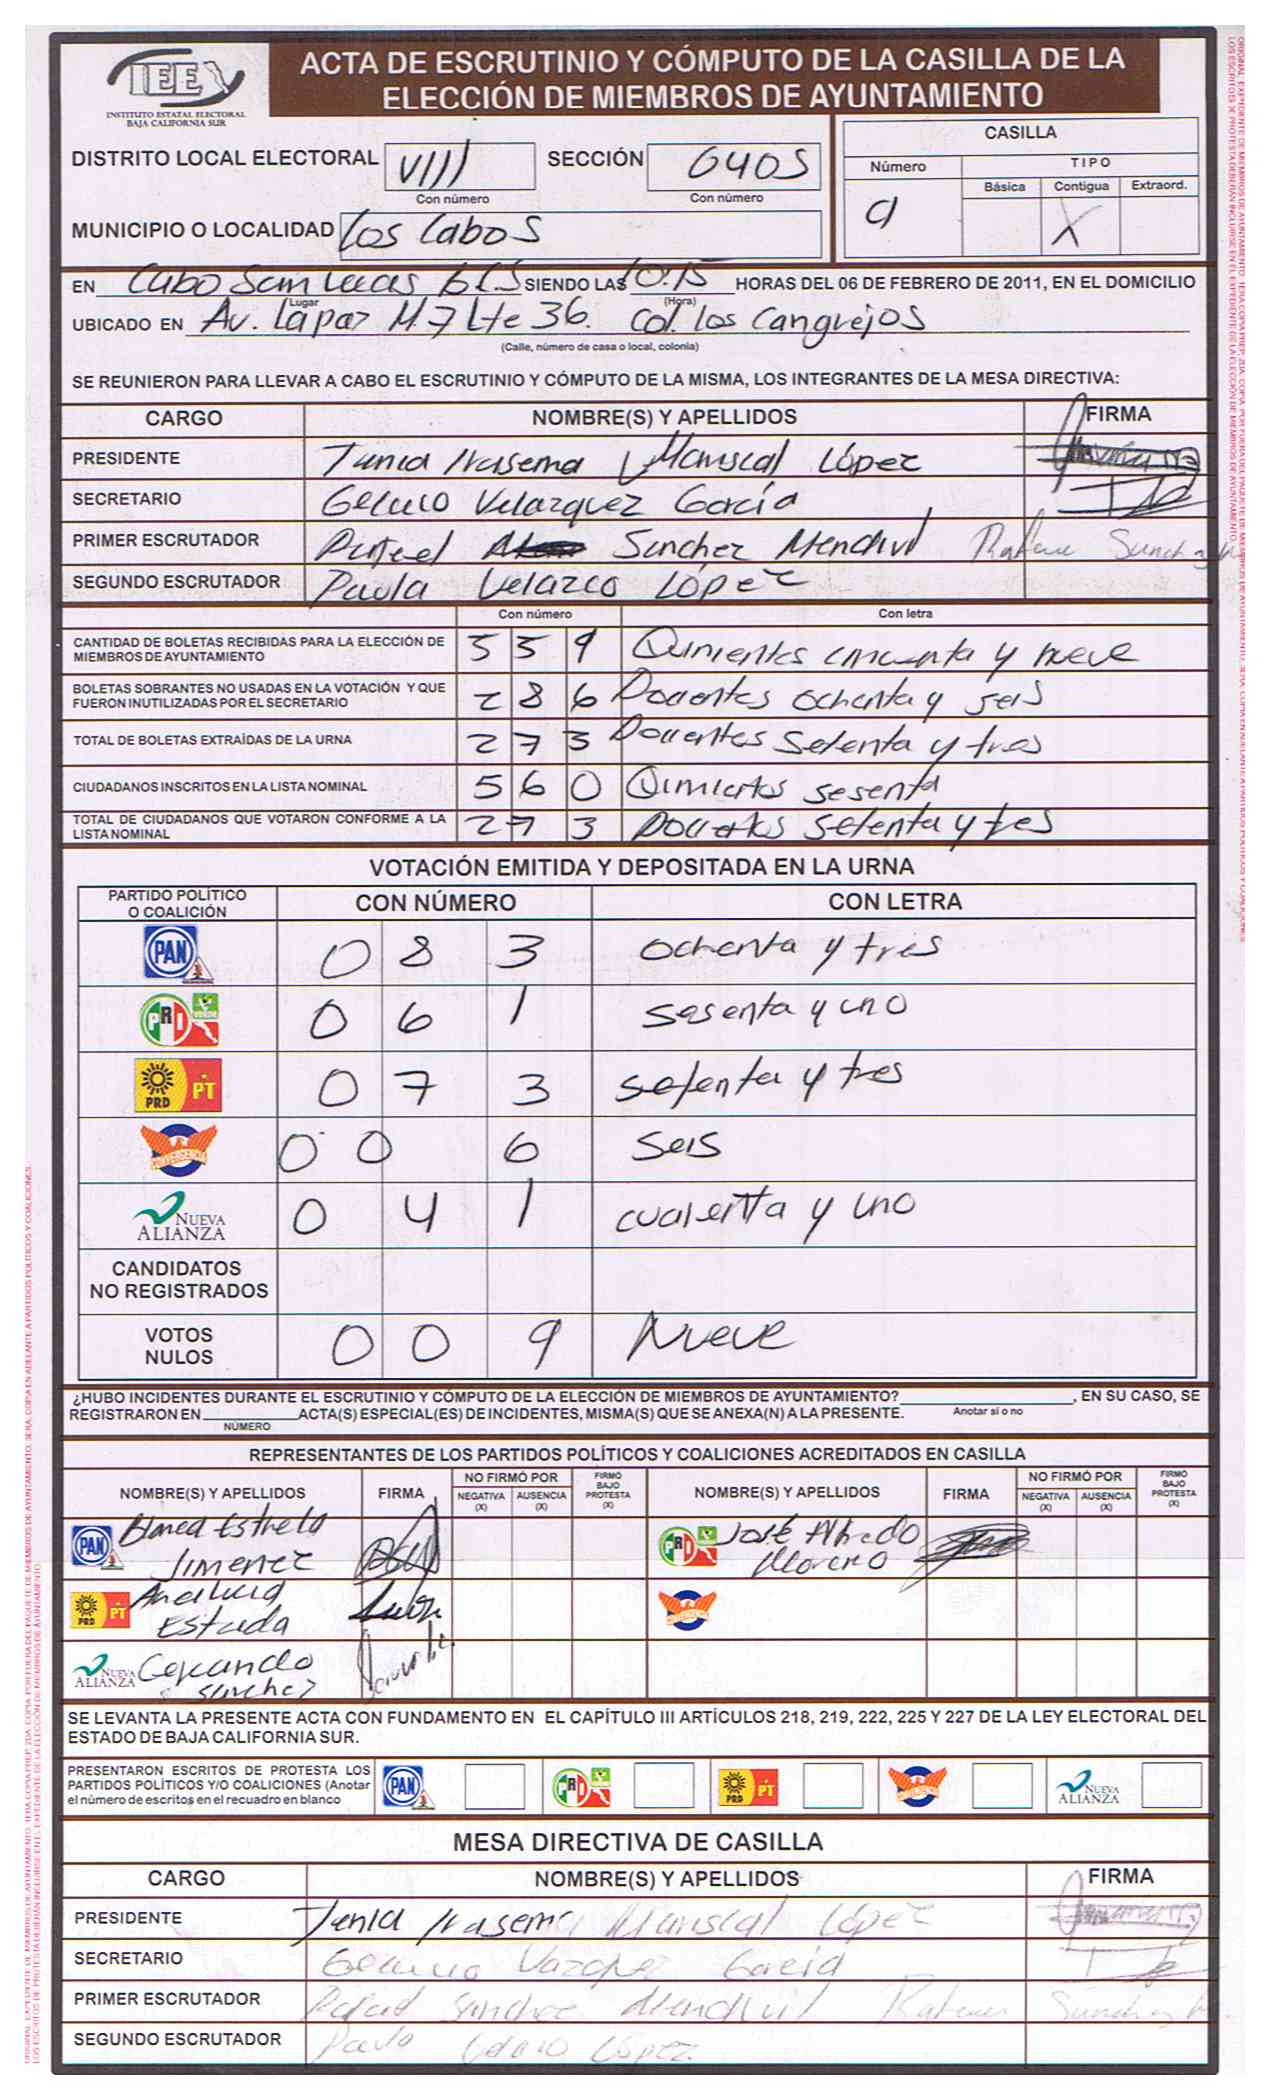 IEE
INSTITUTO ESTATAL ELECTORAL
BAJA CALIFORNIA SUR
ACTA DE ESCRUTINIO Y CÓMPUTO DE LA CASILLA DE LA
ELECCIÓN DE MIEMBROS DE AYUNTAMIENTO
DISTRITO LOCAL ELECTORAL VIII SECCIÓN 0405
Con número Con número
MUNICIPIO O LOCALIDAD Los Cabos
CASILLA
Número TIPO
Básica Contigua Extraord.
C1 X
EN Cabo San Lucas BCS SIENDO LAS 10:15 HORAS DEL 06 DE FEBRERO DE 2011, EN EL DOMICILIO
Lugar (Hora)
UBICADO EN Av. Lapaz M.7 Lte 36. Col. los Cangrejos
(Calle, número de casa o local, colonia)
SE REUNIERON PARA LLEVAR A CABO EL ESCRUTINIO Y CÓMPUTO DE LA MISMA, LOS INTEGRANTES DE LA MESA DIRECTIVA:
CARGO NOMBRE(S) Y APELLIDOS FIRMA
PRESIDENTE Tania Irasema Mariscal López
SECRETARIO Velazquez García
PRIMER ESCRUTADOR Rafael Sanchez Mendivil
SEGUNDO ESCRUTADOR Paula Velazco López
Con número Con letra
CANTIDAD DE BOLETAS RECIBIDAS PARA LA ELECCIÓN DE
MIEMBROS DE AYUNTAMIENTO 5 5 9 Quinientos cincuenta y nueve
BOLETAS SOBRANTES NO USADAS EN LA VOTACIÓN Y QUE
FUERON INUTILIZADAS POR EL SECRETARIO 2 8 6 Docientos ochenta y seis
TOTAL DE BOLETAS EXTRAÍDAS DE LA URNA 2 7 3 Docientos setenta y tres
CIUDADANOS INSCRITOS EN LA LISTA NOMINAL 5 6 0 Quinientos sesenta
TOTAL DE CIUDADANOS QUE VOTARON CONFORME A LA
LISTA NOMINAL 2 7 3 Docientos setenta y tres
VOTACIÓN EMITIDA Y DEPOSITADA EN LA URNA
PARTIDO POLÍTICO
O COALICIÓN CON NÚMERO CON LETRA
PAN 0 8 3 ochenta y tres
PRI VERDE 0 6 1 sesenta y uno
PRD PT 0 7 3 setenta y tres
CONVERGENCIA 0 0 6 seis
NUEVA ALIANZA 0 4 1 cuarenta y uno
CANDIDATOS
NO REGISTRADOS
VOTOS
NULOS 0 0 9 Nueve
¿HUBO INCIDENTES DURANTE EL ESCRUTINIO Y CÓMPUTO DE LA ELECCIÓN DE MIEMBROS DE AYUNTAMIENTO? , EN SU CASO, SE
REGISTRARON EN ACTA(S) ESPECIAL(ES) DE INCIDENTES, MISMA(S) QUE SE ANEXA(N) A LA PRESENTE. Anotar sí o no
NÚMERO
REPRESENTANTES DE LOS PARTIDOS POLÍTICOS Y COALICIONES ACREDITADOS EN CASILLA
NOMBRE(S) Y APELLIDOS FIRMA NO FIRMÓ POR NEGATIVA (X) AUSENCIA (X) FIRMÓ BAJO PROTESTA (X) NOMBRE(S) Y APELLIDOS FIRMA NO FIRMÓ POR NEGATIVA (X) AUSENCIA (X) FIRMÓ BAJO PROTESTA (X)
PAN Blanca Estrela Jimenez PRI José Alfredo Moreno
PRD PT Analuisa Estrada CONVERGENCIA
NUEVA ALIANZA Gerardo Sanchez
SE LEVANTA LA PRESENTE ACTA CON FUNDAMENTO EN EL CAPÍTULO III ARTÍCULOS 218, 219, 222, 225 Y 227 DE LA LEY ELECTORAL DEL
ESTADO DE BAJA CALIFORNIA SUR.
PRESENTARON ESCRITOS DE PROTESTA LOS
PARTIDOS POLÍTICOS Y/O COALICIONES (Anotar
el número de escritos en el recuadro en blanco PAN PRI PRD PT CONVERGENCIA NUEVA ALIANZA
MESA DIRECTIVA DE CASILLA
CARGO NOMBRE(S) Y APELLIDOS FIRMA
PRESIDENTE Tania Irasema Mariscal López
SECRETARIO Vazquez García
PRIMER ESCRUTADOR Rafael Sanchez Mendivil
SEGUNDO ESCRUTADOR Paula López